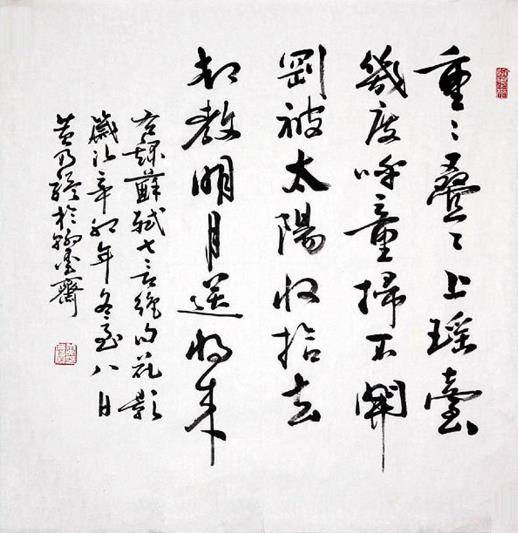 重〻疊〻上瑤臺
幾度呼童掃不開
剛被太陽收拾去
却教明月送将来
右録蘇軾七言絶句花影
歲次辛卯年冬至八日
黄乃於墨齋